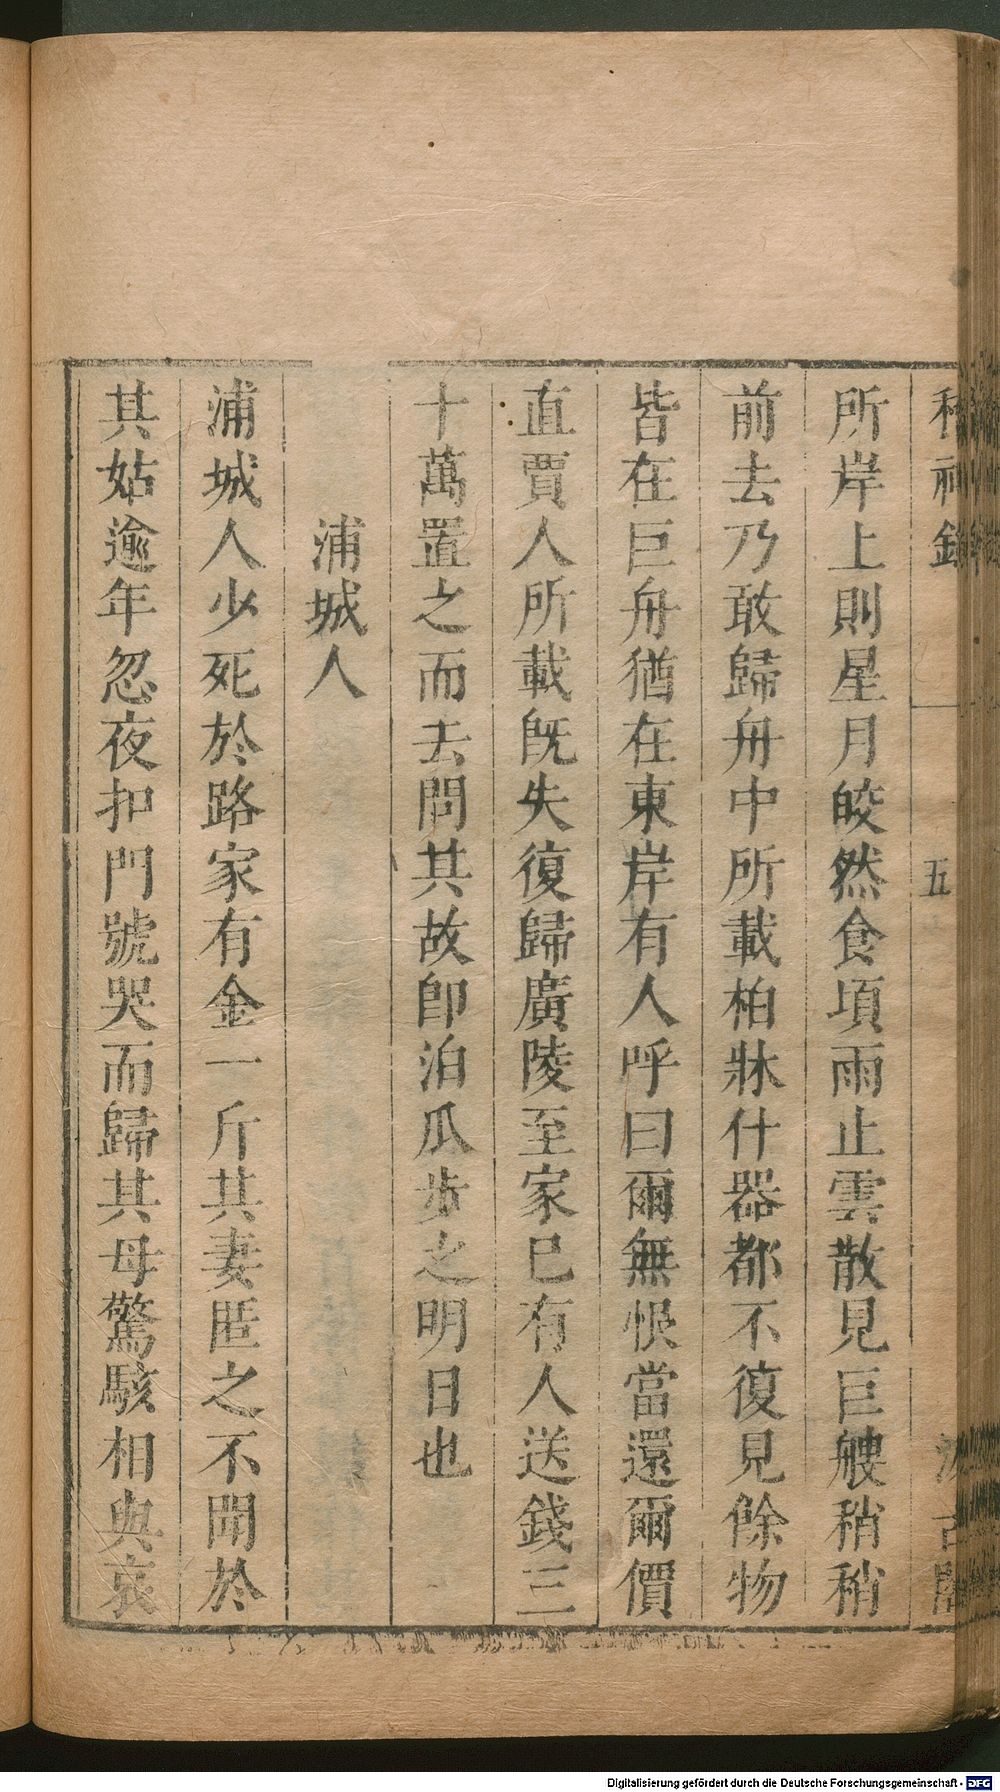 稽神錄
五
汲古閣
所岸上則星月皎然食頃雨止雲散見巨艘稍稍
前去乃敢歸舟中所載柏牀什器都不復見餘物
皆在巨舟猶在東岸有人呼曰爾無恨當還爾價
直賈人所載旣失復歸廣陵至家已有人送錢三
十萬置之而去問其故卽泊瓜步之明日也
浦城人
浦城人少死於路家有金一斤其妻匿之不聞於
其姑逾年忽夜扣門號哭而歸其母驚駭相與哀
Digitalisierung gefördert durch die Deutsche Forschungsgemeinschaft - DFG